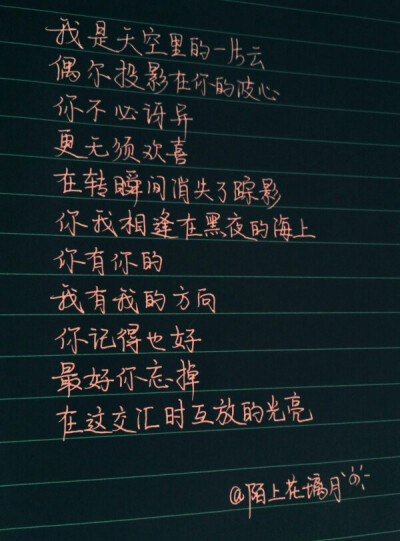 我是天空里的一片云
偶尔投影在你的波心
你不必讶异
更无须欢喜
在转瞬间消失了踪影
你我相逢在黑夜的海上
你有你的
我有我的方向
你记得也好
最好你忘掉
在这交汇时互放的光亮
@陌上花璃月